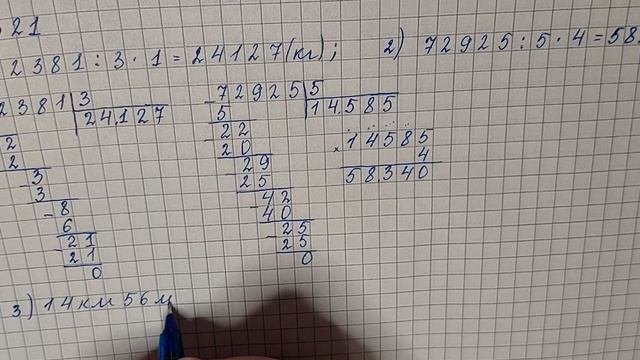 21
2381 : 3 · 1 = 24127 (кг) ; 2) 72925 : 5 · 4 = 58
2381 3
24.127
2
2
3
3
8
6
21
21
0
72925 5
14.585
5
22
20
29
25
42
40
25
25
0
× 14585
4
58.340
3) 14 км 56 м